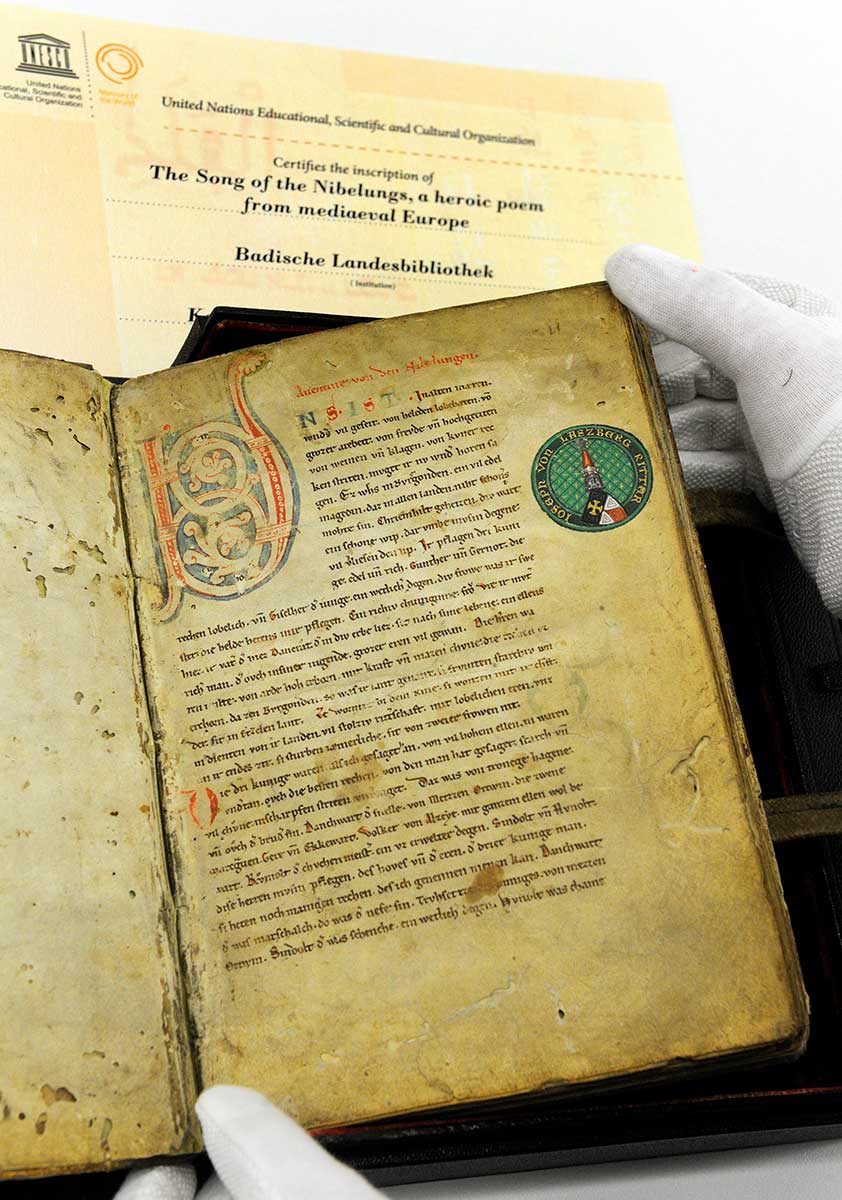 UNESCO
United Nations
Educational, Scientific and
Cultural Organization
Memory of
the World
United Nations Educational, Scientific and Cultural Organization
Certifies the inscription of
The Song of the Nibelungs, a heroic poem
from mediaeval Europe
Badische Landesbibliothek
(Institution)
K
Auenture von den Nibelungen.
VNS. IST. In alten mæren.
wnders vil geseit. von heleden lobebæren. võ
grozer arebeit. von frevde vñ hochgeciten
von weinen vñ klagen. von kvner rec
ken striten. mvget ir nv wnder horen sa
gen. Ez whs in Bvrgonden. ein vil edel
magedin. daz in allen landen. niht schoners
mohte sin. Chriemhilt geheizen. div wart
ein schone wip. dar vmbe mvsin degene
vil verliesen den lip. Ir pflagen dri kuni
ge. edel vñ rich. Gunther vñ Gernot. die
rechen lobelich. vñ Giselher d iunge. ein wetlich degen. div frowe was ir swe
ster. die helde hetens inir pflegen. Ein richiv chuniginne. frov Vte ir mvter
hiez. ir vater d hiez Dancrat. d in div erbe liez. sit nach sime lebene. ein ellens
rich man. d ovch in siner iugende. grozer eren vil gewan. Die herren wa
ren milte. von arde hoh erborn. mit kraft vñ mazen chvne. die
erchorn. da zen Bvrgonden. so was ir lant genant. si frvmten starchiv wn
der. sit in Ezelen lant. Ze wormz bi dem Rine. si wonten mit ir chraft.
in dienten von ir landen. vil stolziv ritterschaft. mit lobelichen eren. vnz
an ir endes zit. si sturben iæmerliche. sit von zweier frowen nit.
Die dri kunige waren. als ich gesaget han. von vil hohen ellen. in waren
vndertan. ovch die besten rechen. von den man hat gesaget. starch vñ
vil chvne. in scharpfen striten vnverzaget. Daz was von tronege hagene.
vñ ovch d brvder sin. Danchwart d snelle. von Metzen Ortwin. die zwene
marcgraven. Gere vñ Ekkewart. Volker von Alzeye. mit ganzem ellen wol be
wart. Rvmolt d chvchenmeister. ein vz erwelter degen. Sindolt vñ Hvnolt.
dise herren mvsin pflegen. des hoves vñ d eren. d drier kunige man.
si heten noch manigen rechen. des ich genennen nienen kan. Danchwart
d was marschalch. do was d nefe sin. Trvhsetze des kuniges. von mezzen
Ortwin. Sindolt d was schenche. ein wetlich degen. Hvnolt was chame
IOSEPH VON LASZBERG RITTER